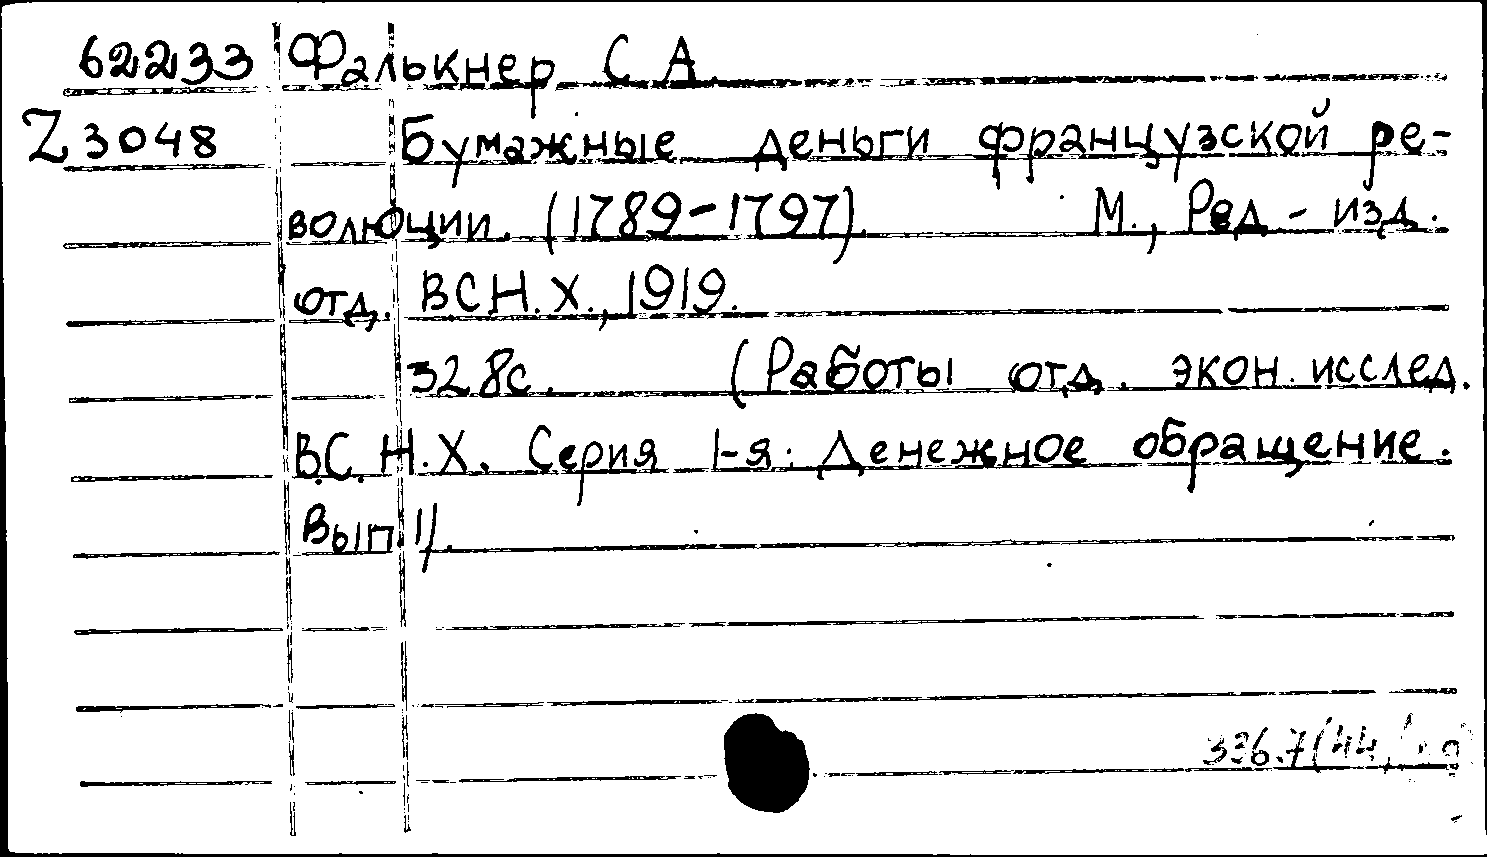 62233 Фалькнер С А.
Z 3048 Бумажные деньги французской ре-
волюции. (1789-1797). М., Ред.-изд.
отд. ВСН.Х., 1919.
328с. (Работы отд. экон. исслед.
В.С.Н.Х. Серия 1-я: Денежное обращение.
Вып.1).
336.7(44)